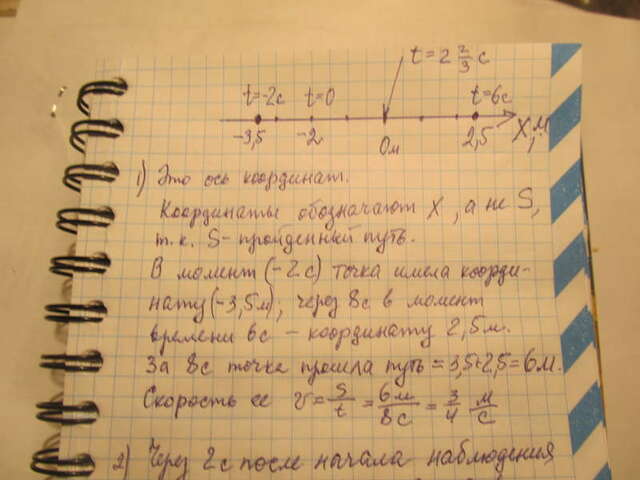 t = 2 2/3 с
t=-2с t=0 t=6с
-3,5 -2 0м 2,5 X,м
1) Это ось координат.
Координаты обозначают X, а не S,
т.к. S - пройденный путь.
В момент (-2с) точка имела коорди-
нату (-3,5м), через 8с в момент
времени 6с - координату 2,5м.
За 8с точка прошла путь = 3,5+2,5 = 6м.
Скорость ее v = S/t = 6м/8с = 3/4 м/с
2) Через 2с после начала наблюдения